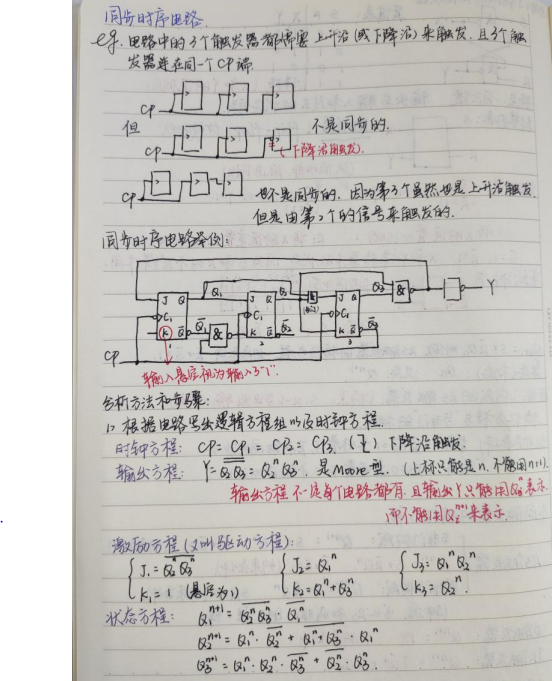 同步时序电路.
eg. 电路中的3个触发器都需要上升沿(或下降沿)来触发,且3个触
发器连在同一个CP端.
CP
但
CP
不是同步的.
(下降沿触发)
CP
也不是同步的, 因为第3个虽然也是上升沿触发,
但是由第2个的信号来触发的.
同步时序电路举例:
J Q Q₁ J Q Q₂ & J Q Q₃ & Y
C₁ C₁ C₁
K Q̅ Q̅₁ & K Q̅ Q̅₂ K Q̅ Q̅₃
1 2 3
CP
输入悬空视为输入了"1".
分析方法和步骤:
1> 根据电路写出逻辑方程组以及时钟方程.
时钟方程: CP = CP₁ = CP₂ = CP₃. (↓) 下降沿触发.
输出方程: Y = Q₂Q₃ = Q₂ⁿQ₃ⁿ, 是Moore型. (上标只能是n, 不能用n+1).
输出方程不一定每个电路都有, 且输出Y只能用Q₂ⁿ表示,
而不能用Q₂ⁿ⁺¹来表示.
激励方程(又叫驱动方程):
{ J₁ = \overline{Q₂ⁿQ₃ⁿ} { J₂ = Q₁ⁿ { J₃ = Q₁ⁿQ₂ⁿ
K₁ = 1 (悬空为1) K₂ = Q₁ⁿ+Q₃ⁿ K₃ = Q₂ⁿ.
状态方程: Q₁ⁿ⁺¹ = \overline{Q₂ⁿQ₃ⁿ} · \overline{Q₁ⁿ}
Q₂ⁿ⁺¹ = Q₁ⁿ · \overline{Q₂ⁿ} + \overline{Q₁ⁿ+Q₃ⁿ} · Q₁ⁿ
Q₃ⁿ⁺¹ = Q₁ⁿ · Q₂ⁿ · \overline{Q₃ⁿ} + \overline{Q₂ⁿ} · Q₃ⁿ.